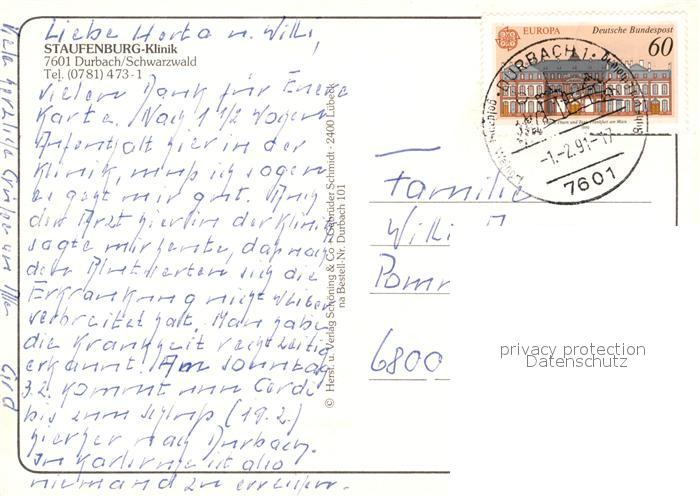 Liebe Herta u. Willi,
STAUFENBURG-Klinik
7601 Durbach/Schwarzwald
Tel. (0781) 473-1
vielen Dank für Euere
Karte. Nach 1 1/2 wogen
Aufenthalt hier in der
Klinik, muß ich sagen
es geht mir gut. Auch
der Arzt hier in der Klinik
sagte mir heute, daß nach
den Blutwerten sich die
Erkrankung nicht weiter
verbreitet hat. Man habe
die Krankheit rechtzeitig
erkannt. Am Sonntag
3.2. kommt nun Gerdi
bis zum Schluß (19.2.)
hierher nach Durbach.
In Karlsruhe ist also
niemand zu erreichen.
Viele herzliche Grüße
© Herst. u. Verlag Schöning & Co · Gebrüder Schmidt · 2400 Lübeck
na Bestell-Nr. Durbach 101
EUROPA Deutsche Bundespost
60
DURBACH 1
-1.-2.91-17
7601
Familie
Willi
6800
privacy protection
Datenschutz